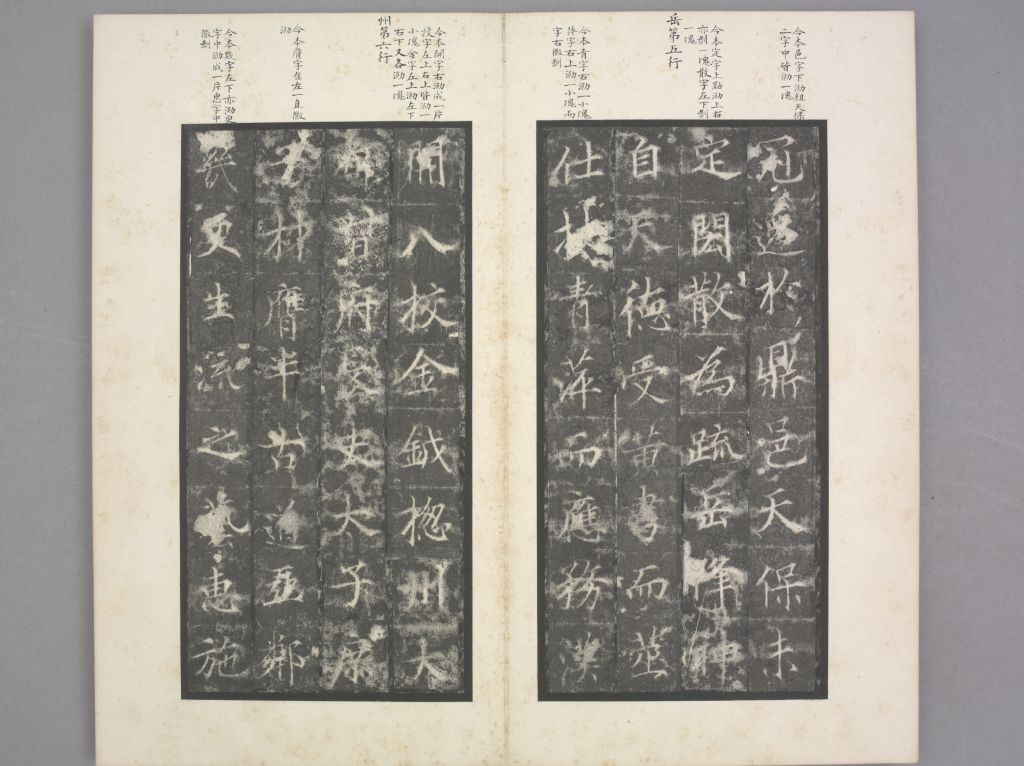 今本邑字下泐粗天保
二字中皆泐一塊
岳第五行
今本定字上點泐上右
亦剝一塊散字左下剝
一塊
今本青字右泐一小塊
萍字右上泐一小塊而
字右微剝
於鼎邑天保未
定閎散為疏岳降神
自天德受書而
仕接青萍而應務漢
州第六行
今本開字右泐成一片
校字左上右上皆泐一
小塊金字左上泐左下
右下又各泐一塊
今本膺字左一直微
泐
今本幾字左下亦泐更
字中泐成一片惠字中
微剝
開八校金鉞揔州大
督府長史太子
材膺半古迫亞鄰
幾更生流之惠施